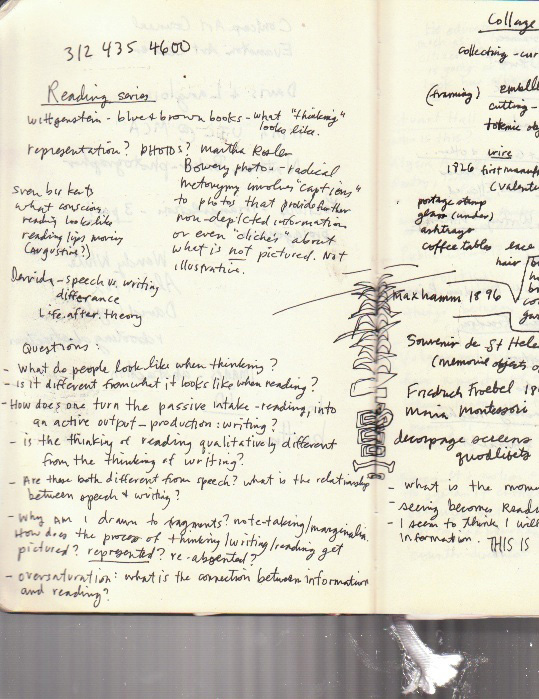 312 435 4600
Reading series
wittgenstein - blue & brown books - what "thinking"
looks like.
representation? photos? Martha Rosler
Bowery photos - radical
metonymy involves "caption,"
to photos that provide further
non-depicted information
or even "cliches" about
what is not pictured. Not
illustrative.
sven birkerts
what conscious
reading looks like
reading lips moving
(Augustine?)
Derrida - speech vs. writing
differance
Life.after.theory
Questions:
- What do people look like when thinking?
- Is it different from what it looks like when reading?
- How does one turn the passive intake - reading, into
an active output - production: writing?
- is the thinking of reading qualitatively different
from the thinking of writing?
- Are these both different from speech? what is the relationship
between speech & writing?
- Why am I drawn to fragments? note-taking/marginalia.
How does the process of thinking/writing/reading get
pictured? represented? re-absented?
- oversaturation: what is the connection between information
and reading?
Collage
collecting - cur
(framing) embell
cutting -
totemic obj
wire
1826 first manuf
(valenti
postage stamp
glass (under)
ashtrays
coffee tables
hair
Max hamm 1896
Souvenir de St Hele
(memorial objects o
Friedrich Froebel 18
Maria Montessori
decopage screens
quodlibets
- what is the mome
- seeing becomes readi
- I seem to think I will
information. THIS IS